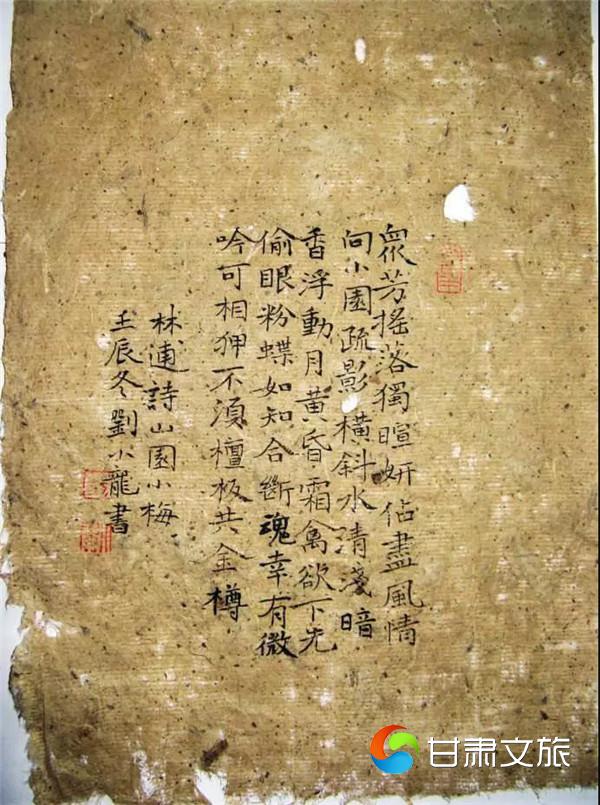 眾芳搖落獨暄妍佔盡風情
向小園疏影橫斜水清淺暗
香浮動月黃昏霜禽欲下先
偷眼粉蝶如知合斷魂幸有微
吟可相狎不須檀板共金樽
林逋詩山園小梅
壬辰冬劉小龍書
甘肃文旅